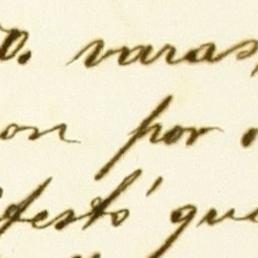 o. varas,
on por
festó que